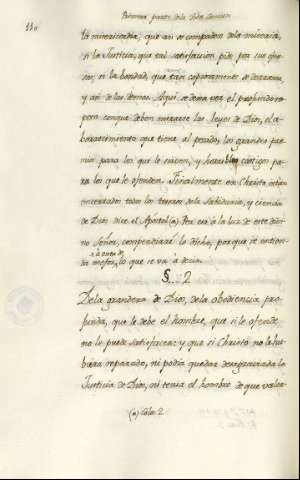 110
Primera parte de la Vida
la misericordia, que asi se compadece de la miseria,
si la Justicia, que tal satisfaccion pide por sus ofen
sas; si la bondad, que tan copiosamente se derrama,
y asi de las demas. Aqui se dexa ver el profundo res
peto conque deben mirarse las leyes de Dios, el a-
borrecimiento que tiene al pecado, los grandes pre-
mios para los que le sirven, y horribles castigos pa
ra los que le ofenden. Finalmente en Christo estan
encerrados todos los tesoros de la Sabiduria, y ciencia
de Dios dice el Apostol (a). Pero a la luz de este divi
no Señor, compendiaré lo dicho, porque se entien
da mejor, lo que se va a decir.
§. 2
De la grandeza de Dios, de la obediencia pro
funda, que le debe el hombre, que si le ofende
no le puede satisfacer: y que si Christo no la hu
biera reparado, ni podia quedar desagraviada la
Justicia de Dios, ni tenia el hombre de que valer
(a) Colos. 2